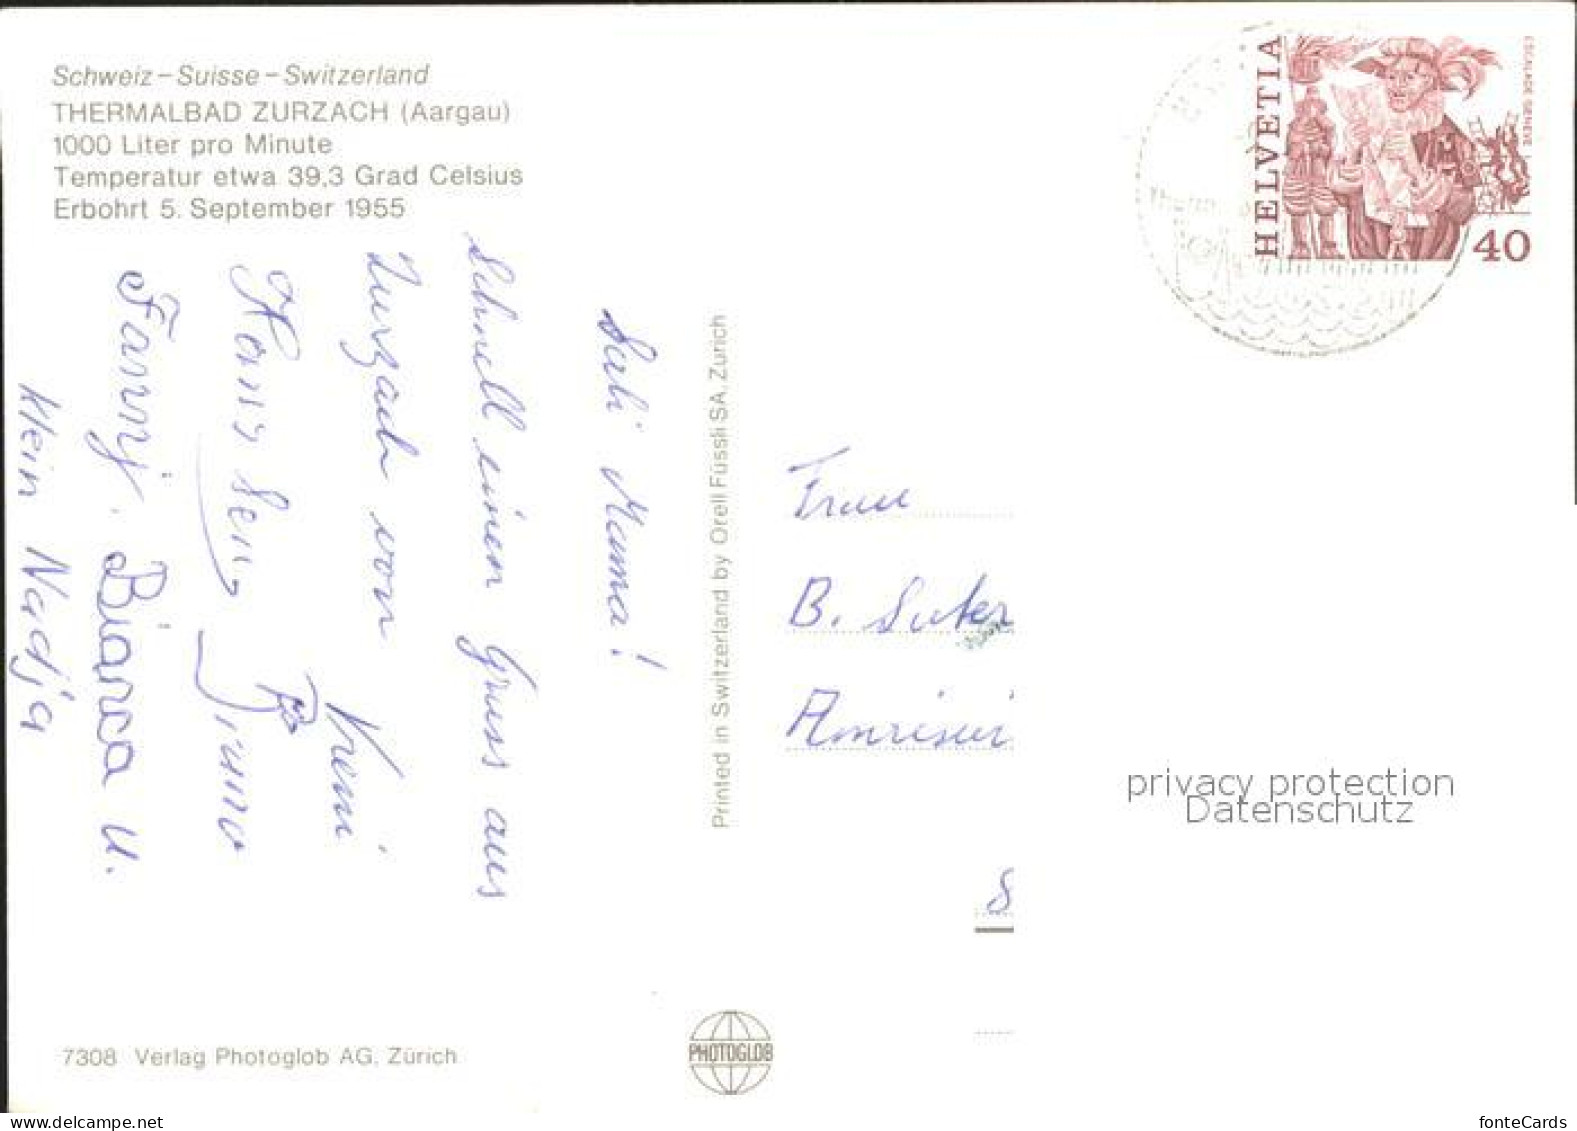 Schweiz – Suisse – Switzerland
THERMALBAD ZURZACH (Aargau)
1000 Liter pro Minute
Temperatur etwa 39,3 Grad Celsius
Erbohrt 5. September 1955
Sali Mama!
Schnell einen Gruss aus
Zurzach von Vreni
Hans
Bruno
Fanny. Bianca u.
klein Nadja
Printed in Switzerland by Orell Füssli SA, Zürich
HELVETIA
ESCALADE GENÈVE
40
Frau
B. Suter
Amriswi
8
privacy protection
Datenschutz
7308 Verlag Photoglob AG, Zürich
PHOTOGLOB
www.delcampe.net
fonteCards